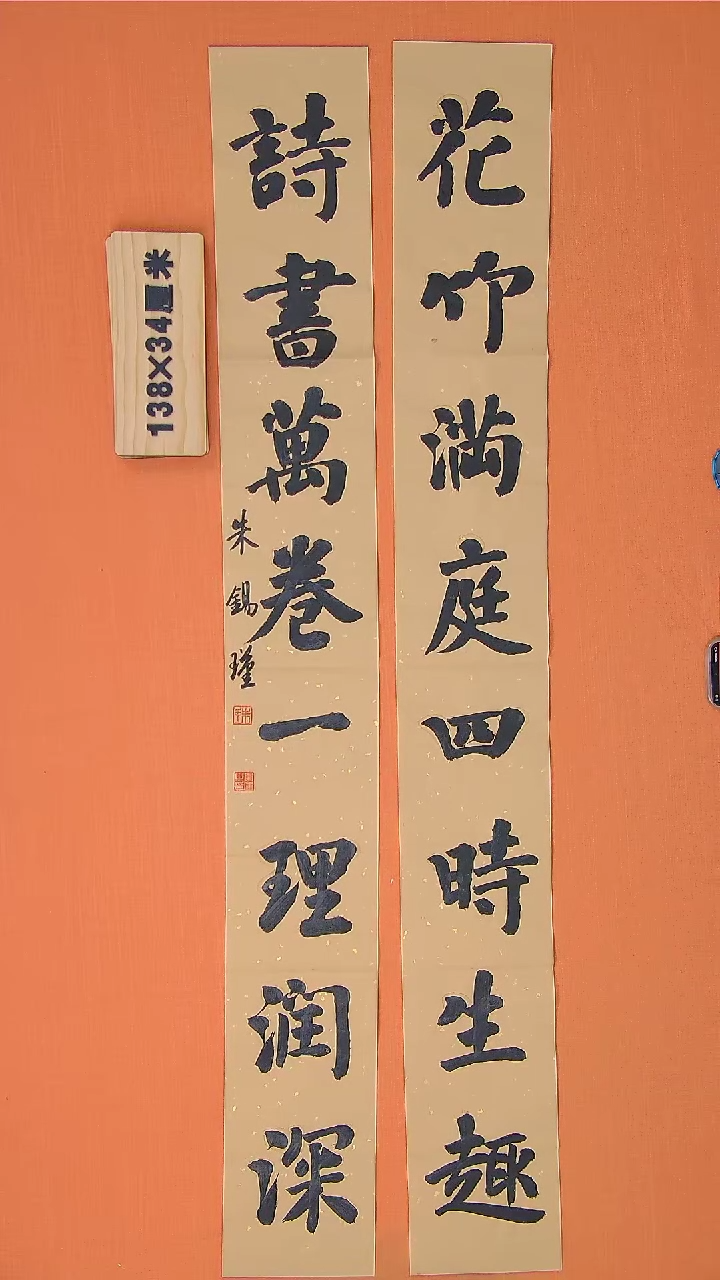 花竹满庭四時生趣
詩書萬卷一理润深
朱錫瑾
138×34厘米